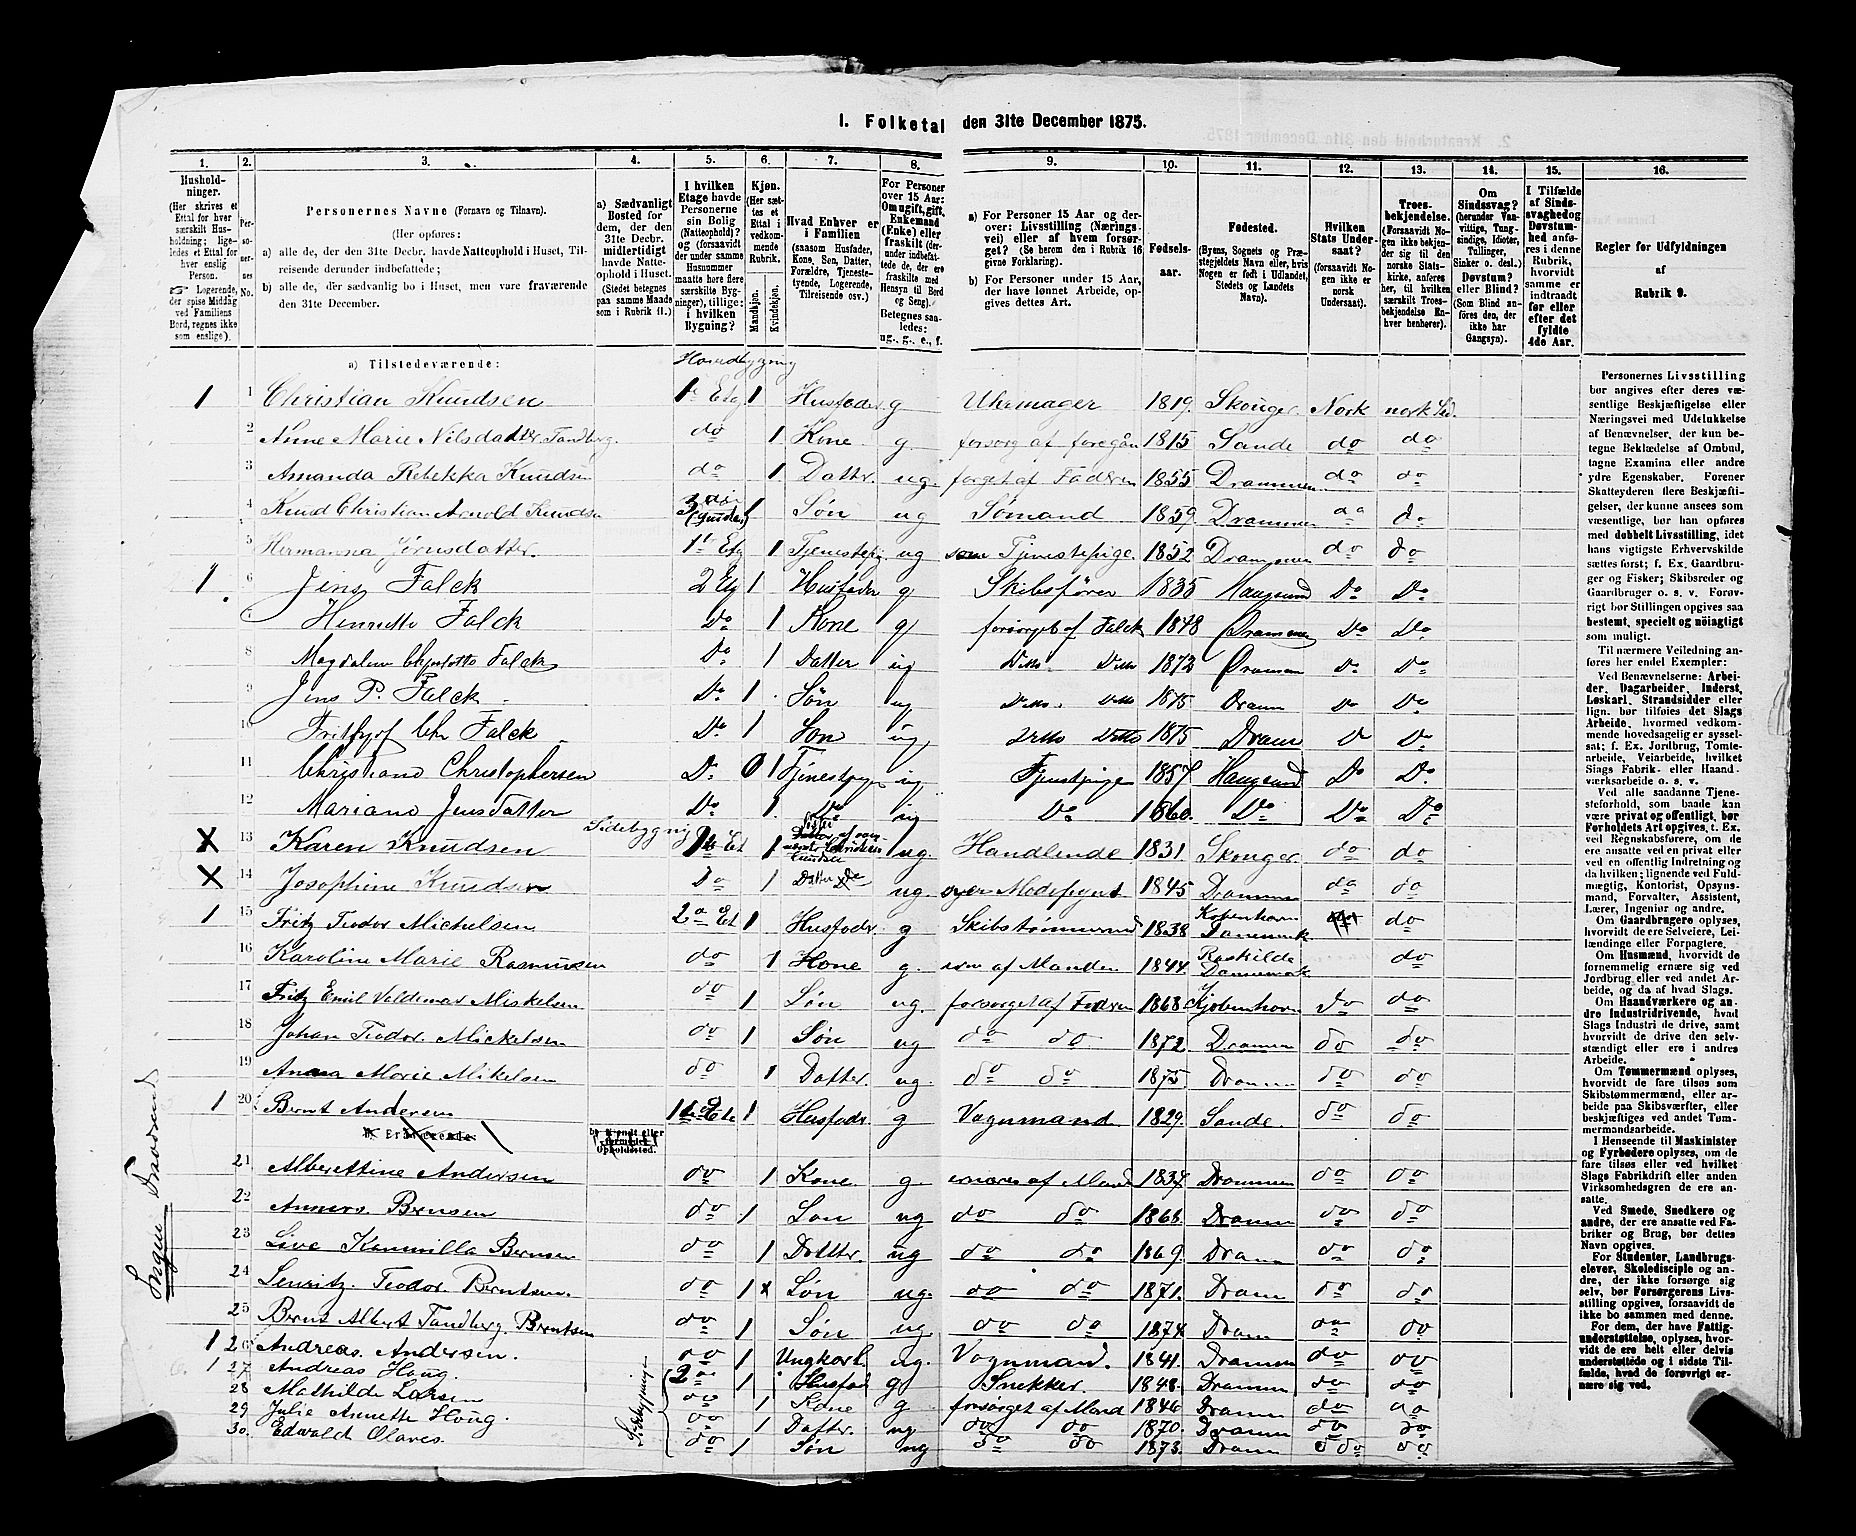 1. Folketal den 31te December 1875.
1. 2. 3. 4. 5. 6. 7. 8. 9. 10. 11. 12. 13. 14. 15. 16.
Husholdninger. (Her skrives et Ettal for hver særskilt Husholdning; ligeledes et Ettal for hver enslig Person. Logerende, der spise Middag ved Familiens Bord, regnes ikke som enslige).
Personernes No.
Personernes Navne (Fornavn og Tilnavn).
(Her opføres:
a) alle de, der den 31te Decbr. havde Natteophold i Huset, Tilreisende derunder indbefattede;
b) alle de, der sædvanlig bo i Huset, men vare fraværende den 31te December.
a) Sædvanligt Bosted for dem, der den 31te Decbr. midlertidigt havde Natteophold i Huset. (Stedet betegnes paa samme Maade som i Rubrik 11.)
I hvilken Etage havde Personerne sin Bolig (Natteophold)? og (forsaavidt der under samme Husnummer maatte høre flere særskilte Bygninger), tillige: i hvilken Bygning?
Kjøn. (Her sættes et Ettal i vedkommende Rubrik. Mandkjøn. Kvindekjøn.
Hvad Enhver er i Familien (saasom Husfader, Kone, Søn, Datter, Forældre, Tjenestetyende, Logerende, Tilreisende osv.)
For Personer over 15 Aar: Om ugift, gift, Enkemand (Enke) eller fraskilt (derunder indbefattede de, der ere fraskilte med Hensyn til Bord og Seng). Betegnes saaledes: ug., g., e., f.
a) For Personer 15 Aar og derover: Livsstilling (Næringsvei) eller af hvem forsørget? (Se herom den i Rubrik 16 givne Forklaring).
b) For Personer under 15 Aar, der have lønnet Arbeide, opgives dettes Art.
Fødselsaar.
Fødested. (Byens, Sognets og Præstegjeldets Navn eller, hvis Nogen er født i Udlandet, Stedets og Landets Navn).
Hvilken Stats Undersaat? (forsaavidt Nogen ikke er norsk Undersaat).
Troesbekjendelse. (Forsaavidt Nogen ikke bekjender sig til den norske Statskirke, anføres her, til hvilken særskilt Troesbekjendelse Enhver henhører).
Om Sindssvag? (herunder Vanvittige, Tungsindige, Idioter, Tullinger, Sinker o. desl.) Døvstum? eller Blind? (Som Blind anføres den, der ikke har Gangsyn).
I Tilfælde af Sindssvaghed og Døvstumhed anføres i denne Rubrik, hvorvidt samme er indtraadt før eller efter det fyldte 4de Aar.
Regler for Udfyldningen
af
Rubrik 9.
a) Tilstedeværende:
1 1 Christian Knudsen 1 Etg 1 Husfader g Uhrmager 1819 Skouger Nork
2 Anne Marie Nilsdatter Tandberg do 1 Kone g. forsørg af foregån 1815 Sande do do
3 Amanda Rebekka Knudsen do 1 Datter ug. forsørget af Faderen 1855 Drammen do do
4 Knud Christian Arnold Knudsen 1 Søn ug Sømand 1859 Drammen do do
5 Hermanna 1 Etg 1 ug Tjenestepige 1852 Drammen do do
1 6 Jens Falck 2 Etg 1 Husfader g Skibsfører 1835 Haugsund Do Do
7 Henrette Falck Do 1 Kone g forsørget af Falck 1848 Drammen Do Do
8 Magdalene Falck Do 1 Datter ug Ditto Ditto 1872 Drammen Do Do
9 Jens P. Falck Do 1 Søn ug Ditto Ditto 1875 Dramm Do Do
10 Fritjof Chr Falck Do 1 Søn ug Ditto Ditto 1875 Dramm D Do
11 Christiane Christophersen Do 0 1 ug Tjenestpige 1857 Haugsund Do Do
12 Mariane Jensdatter Do 1 Do ug Do 1860 Do Do Do
Sidebygnig
X 13 Karen Knudsen 1 ug. Handlende 1831 Skouger do do
X 14 Josephine Knudsen Do 1 Datter ug 1845 Drammen do do
1 15 Fritz Teodor Michelsen 2 Et 1 Husfader g Skibstømmermand 1838 Kobenhavn Danemark do
16 Karoline Marie Rasmusen do 1 Kone g. af Manden 1844 Roskilde Danemark do
17 Fritz Emil Valdemar Miskelsen do 1 Søn ug. forsørget af Faderen 1868 Kjøbenhavn do do
18 Johan Teodor Mickelsen do 1 Søn ug do do 1872 Drammen do do
19 Anna Marie Mikelsen do 1 Datter ug. do do 1875 Drammen do do
1 20 Bernt Andersen 1 Et 1 Husfader g Vognmand 1829 Sande do do
b) Fraværende:
21 Alberettine Andersen do 1 Kone g. af Mand 1834 Drammen do do
22 Anners Bernsen do 1 Søn ug do do 1866 Drammen do do
23 Live Kammilla Bernsen do 1 Datter ug do do 1869 Dramm do do
24 Teodor Berntsen do 1 x Søn ug. do do 1871 Dramm do do
25 Bernt Albert Tandberg Berntsen do 1 Søn ug. do do 1874 Dramm do do
1 26 Andreas Andersen do 1 Ungkarl ug. Vognmand 1841 Drammen do do
1 27 Andreas Houg 2 1 Husfad g Snekker 1848 Drammen do do
28 Mathilde Larsen do Kone g forsørget af Mand 1846 Drammen do do
29 Julie Annette Houg do 1 Datter ug do do 1870 Drammen do do
30 Edvald Olaves do 1 Søn ug do do 1873 Dramm do do
Sidebygning
Personernes Livsstilling bør angives efter deres væsentlige Beskjæftigelse eller Næringsvei med Udelukkelse af Benævnelser, der kun betegne Beklædelse af Ombud, tagne Examina eller andre ydre Egenskaber. Forener Skatteyderen flere Beskjæftigelser, der kunne ansees som væsentlige, bør han opføres med dobbelt Livsstilling, idet hans vigtigste Erhvervskilde sættes først; f. Ex. Gaardbruger og Fisker; Skibsreder og Gaardbruger o. s. v. Forøvrigt bør Stillingen opgives saa bestemt, specielt og nöiagtigt som muligt.
Til nærmere Veiledning anføres her endel Exempler:
Ved Benævnelserne: Arbeider, Dagarbeider, Inderst, Løskarl, Strandsidder eller lign. bør tilføies det Slags Arbeide, hvormed vedkommende hovedsagelig er sysselsat; f. Ex. Jordbrug, Tomtearbeide, Veiarbeide, hvilket Slags Fabrik- eller Haandværksarbeide o. s. v.
Ved alle saadanne Tjenesteforhold, som baade kan være privat og offentligt, bør Forholdets Art opgives, t. Ex. ved Regnskabsførere, om de ere ansatte ved en privat eller ved en offentlig Indretning og da hvilken; lignende ved Fuldmægtig, Kontorist, Opsynsmand, Forvalter, Assistent, Lærer, Ingeniør og andre.
Om Gaardbrugere oplyses, hvorvidt de ere Selveiere, Leilændinge eller Forpagtere.
Om Husmænd, hvorvidt de fornemmelig ernære sig ved Jordbrug eller ved andet Arbeide, og da af hvad Slags.
Om Haandværkere og andre Industridrivende, hvad Slags Industri de drive, samt hvorvidt de drive den selvstændigt eller ere i andres Arbeide.
Om Tømmermænd oplyses, hvorvidt de fare tilsøs som Skibstømmermænd, eller arbeide paa Skibsværfter, eller beskjæftiges ved andet Tømmermandsarbeide.
I Henseende til Maskinister og Fyrbødere oplyses, om de fare tilsøs eller ved hvilket Slags Fabrikdrift eller anden Virksomhedsgren de ere ansatte.
Ved Smede, Snedkere og andre, der ere ansatte ved Fabriker og Brug, bør dettes Navn opgives.
For Studenter, Landbrugselever, Skoledisciple og andre, der ikke forsørge sig selv, bør Forsørgerens Livsstilling opgives, forsaavidt de ikke bo sammen med denne.
For dem, der have Fattigunderstøttelse, oplyses, hvorvidt de ere helt eller delvis understøttede og i sidste Tilfælde, hvad de forøvrigt ernære sig ved.